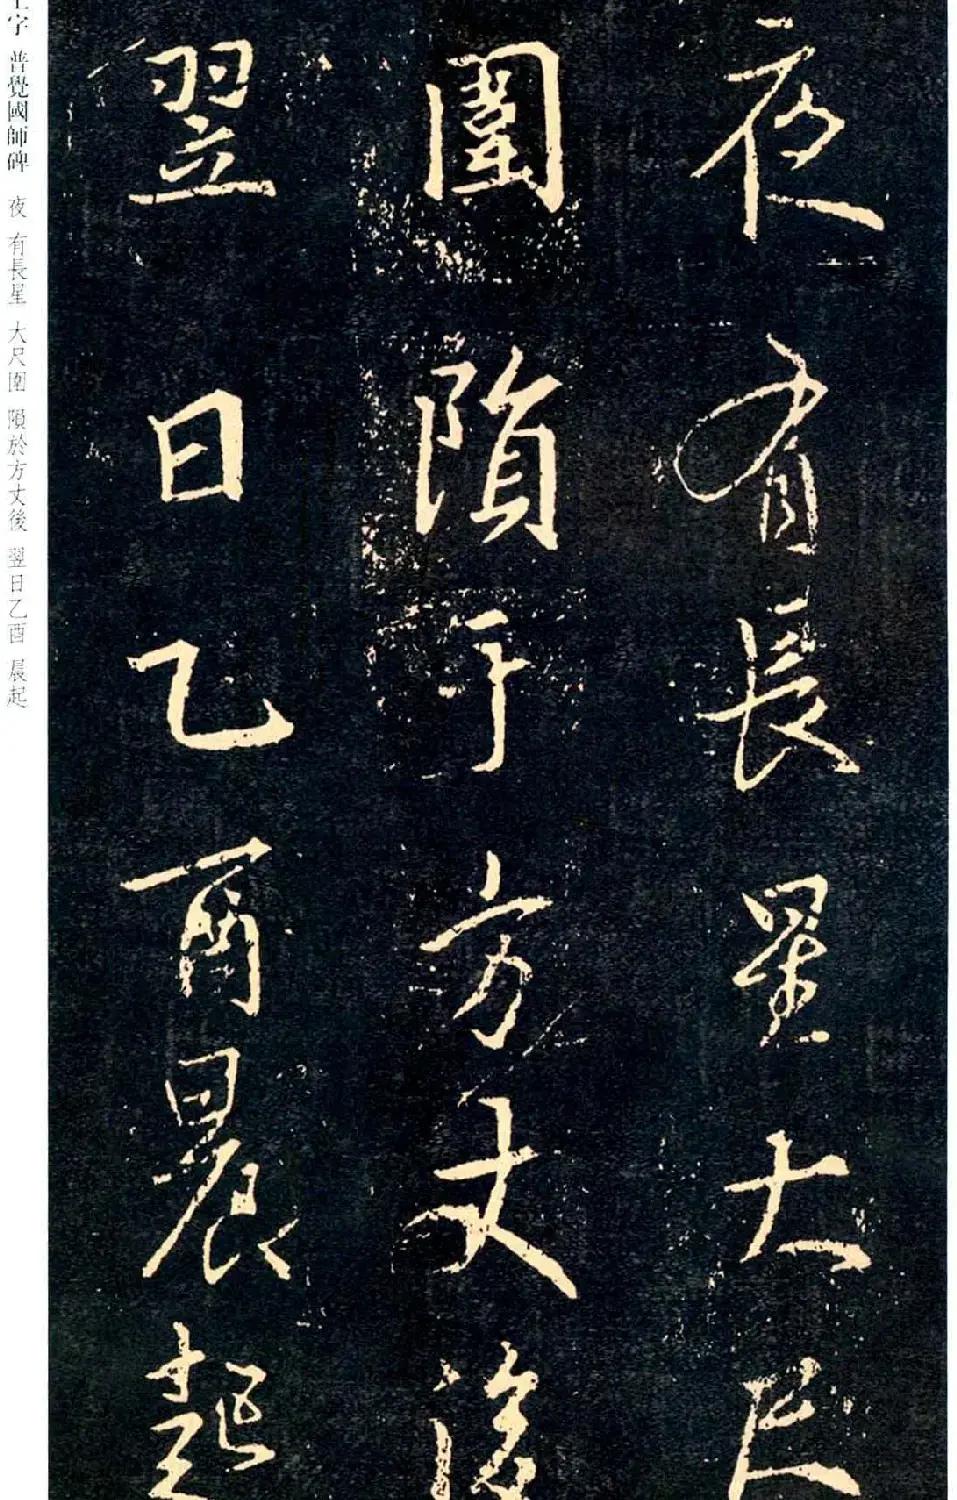 夜有長星大尺
圍隕于方丈後
翌日乙酉晨起
王字 普覺國師碑 夜 有長星 大尺圍 隕於方丈後 翌日乙酉 晨起